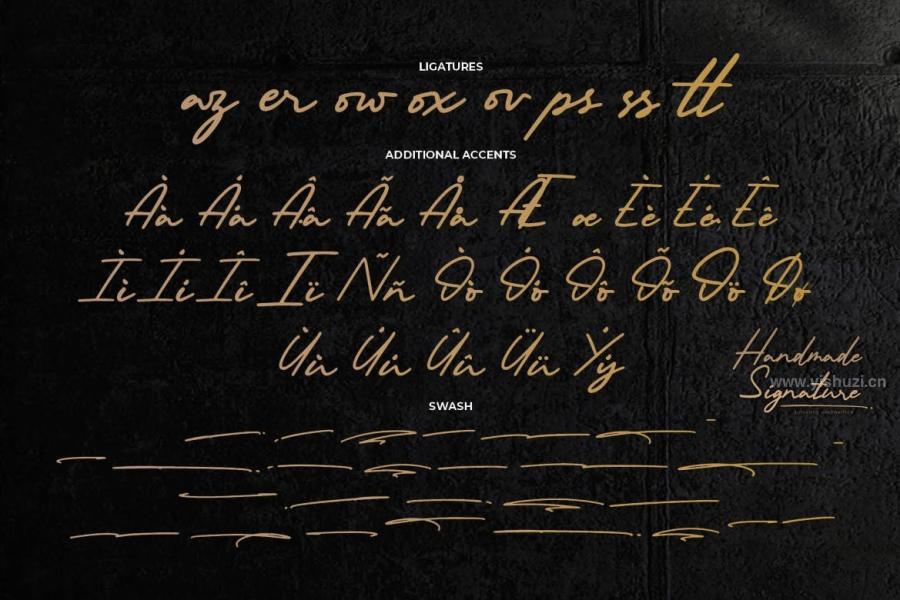 LIGATURES
az er ow ox ov ps ss tt
ADDITIONAL ACCENTS
Àà Áá Ââ Ãã Åå Æ æ Èè Éé Êê
Ìì Íí Îî Ïï Ññ Òò Óó Ôô Õõ Öö Øø
Ùù Úú Ûû Üü Ýý
Handmade
www.yishuzi.cn
Signature
SWASH